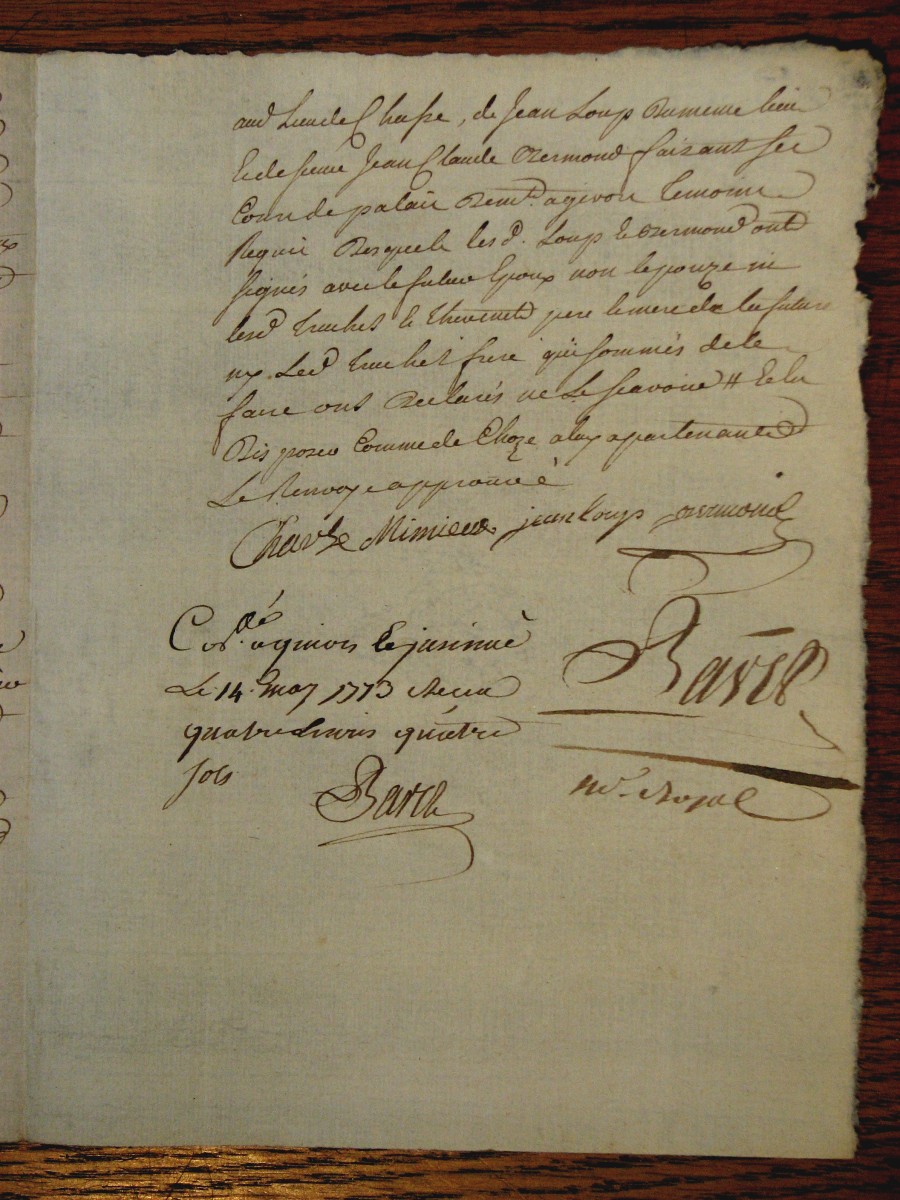 aud Lieu de Chasse, de Jean Loup Dumeme lieu
Et de sieur Jean Claude Dermond faizant ses
Cour de palais Demt. a givors temoins
Requis Desquels lesd. Loup et Dermond ont
signés avec le futur Epoux non l'epouze ni
lesd Truchet Et Thevenet pere et mere de la future
ny Led Truchet frere qui sommés de le
faire ont Declarés ne Le scavoire # Et la
Disposer Comme de Choze a luy apartenante
Le Renvoye approuvé
Charle Mimieux jean loup Dermond
Colé. a givors et insinué
Le 14 may 1773 Recu
quatre Livres quatre
sols
Baret
Baret
nre. Royal